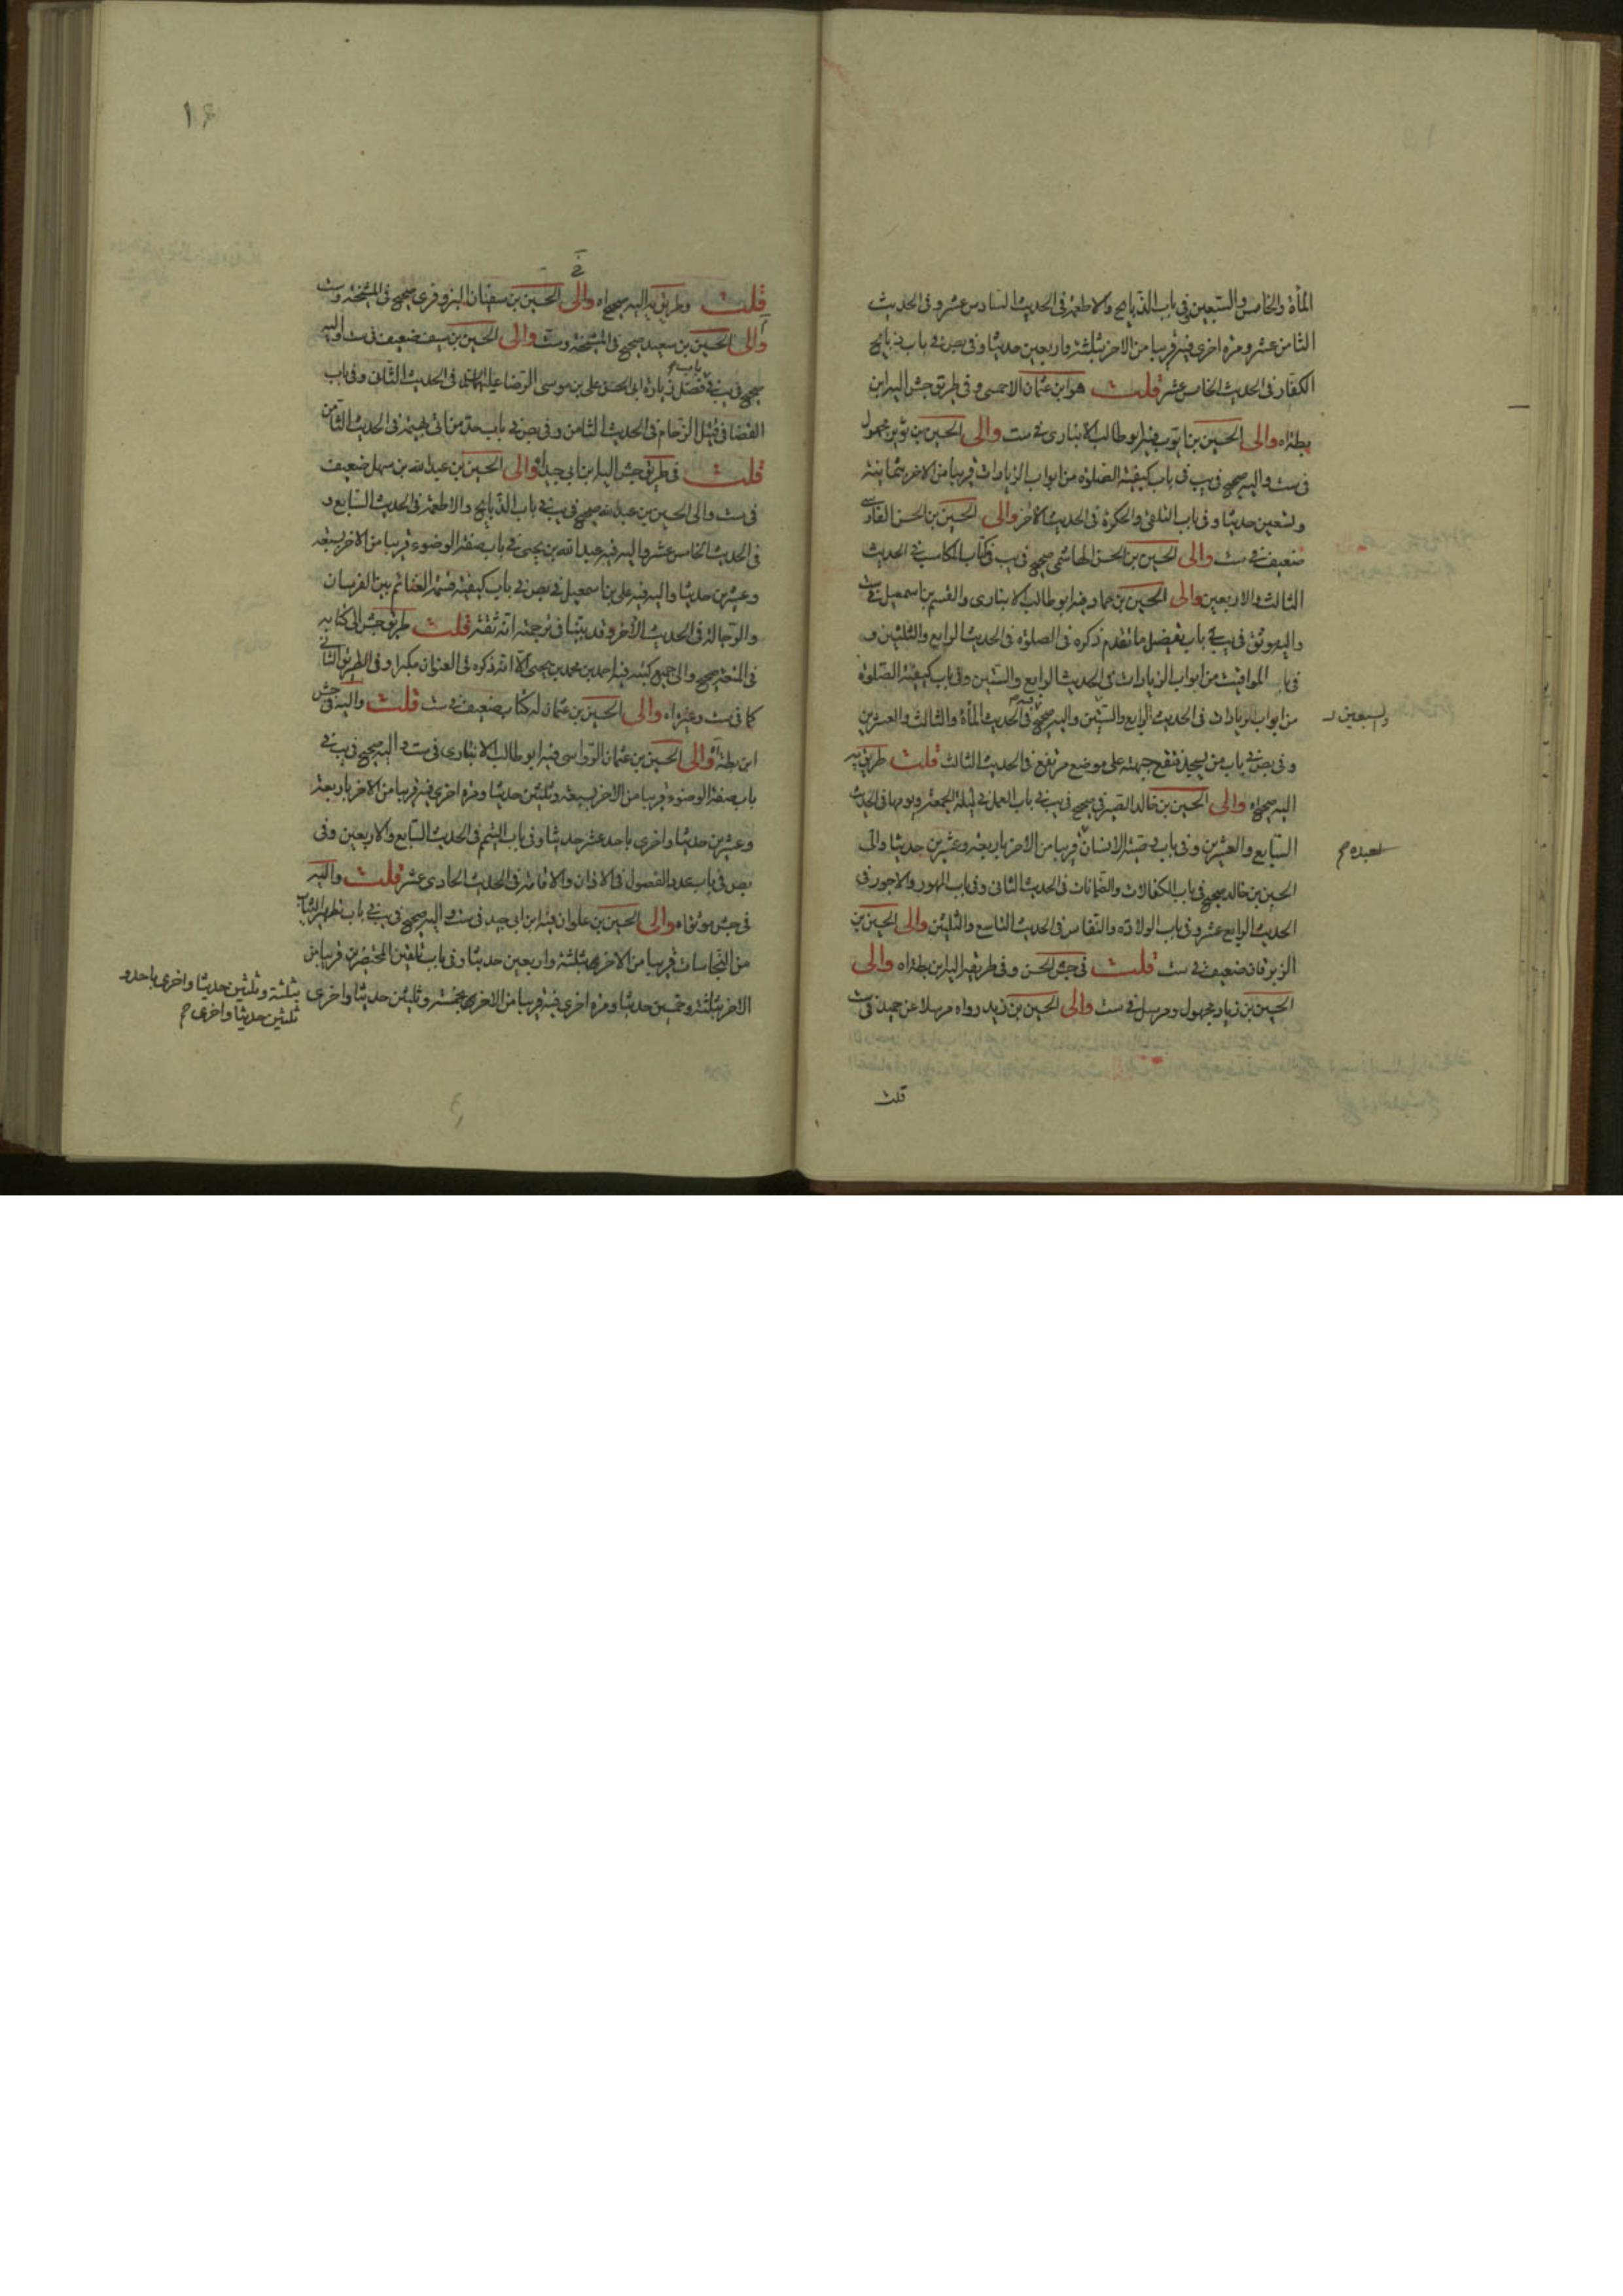 المأة والخامس والسبعين وفى باب الذبايح والاطعمة فى الحديث السادس عشر وفى الحديث
الثامن عشر ومرة اخرى فيه قريبا من الاخر بثلثة واربعين حديثا وفى بص فى باب ذبايح
الكفار فى الحديث الخامس عشر قلت هو ابن عثمان الاحمسى وفى طريق جش اليه ابن
بطة اه والى الحسين بن ايوب فيه ابو طالب الانبارى فى ست والى الحسين بن ثوير مجهول
فى ست واليه صحيح فى يب فى باب كيفية الصلوة من ابواب الزيادات قريبا من الاخر بثمانية
وتسعين حديثا وفى باب التلقى والحكرة فى الحديث الاخر والى الحسين بن الحسن الفارسى
ضعيف فى ست والى الحسين بن الحسن الهاشمى صحيح فى يب فى كتاب المكاسب فى الحديث
الثالث والاربعين والى الحسين بن حماد فيه ابو طالب الانبارى والقسم بن اسمعيل فى ست
واليه موثق فى يب فى باب تفصيل ما تقدم ذكره فى الصلوة فى الحديث الرابع والثلثين و
فى باب المواقيت من ابواب الزيادات فى الحديث الرابع والستين وفى باب كيفية الصلوة
من ابواب الزيادات فى الحديث الرابع والستين واليه صحيح فيه فى الحديث المأة والثالث والعشرين
والسبعين
وفى بص فى باب من يسجد فتقع جبهته على موضع مرتفع فى الحديث الثالث قلت طريق يه
اليه صحيح اه والى الحسين بن خالد الصيرفى صحيح فى يب فى باب العمل فى ليلة الجمعة ويومها فى الحديث
السابع والعشرين وفى باب وصية الانسان قريبا من الاخر باربعة وعشرين حديثا والى
لعبده صح
الحسين بن خالد صحيح فى باب الكفالات والضمانات فى الحديث الثانى وفى باب المهور والاجور فى
الحديث الرابع عشر وفى باب الولادة والنفاس فى الحديث التاسع والثلثين والى الحسين بن
الزبرقان ضعيف فى ست قلت فى جش الحسن وفى طريقه اليه ابن بطة اه والى
الحسين بن زياد مجهول ومرسل فى ست والى الحسين بن زيد رواه مرسلا عن حميد فى ست
قلت
قلت وطريق يه اليه صحيح اه والى الحسين بن سفيان البزوفرى صحيح فى المشيخة وست
والى الحسين بن سعيد صحيح فى المشيخة وست والى الحسين بن سيف ضعيف فى ست واليه
صحيح فى يب فى باب فضل زيارة ابى الحسن على بن موسى الرضا عليهما السلام فى الحديث الثانى وفى باب
القضا فى قتيل الزحام فى الحديث الثامن وفى بص فى باب حد من اتى بهيمة فى الحديث الثامن
قلت فى طريق جش اليه ابن ابى جيد اه والى الحسين بن عبد الله بن سهل ضعيف
فى ست والى الحسين بن عبد الله صحيح فى يب فى باب الذبايح والاطعمة فى الحديث السابع و
فى الحديث الخامس عشر واليه فيه عبد الله بن يحيى فى باب صفة الوضوء قريبا من الاخر بسبعة
وعشرين حديثا واليه فيه على بن اسمعيل فى بص فى باب كيفية قسمة الغنائم بين الفرسان
والرجالة فى الحديث الاخر وقد بينا فى ترجمته انه ثقة قلت طريق جش الى كتابه
فى المتعة صحيح والى جميع كتبه فيه احمد بن محمد بن يحيى الا انه ذكره فى العنوان مكبرا وفى الطريق الثانى
كما فى ست وغيره اه والى الحسين بن عثمان له كتاب ضعيف فى ست قلت واليه فى جش
ابن بطة اه والى الحسين بن عثمان الرواسى فيه ابو طالب الانبارى فى ست واليه صحيح فى يب فى
باب صفة الوضوء قريبا من الاخر بسبعة وثلثين حديثا ومرة اخرى فيه قريبا من الاخر باربعة
وعشرين حديثا واخرى باحد عشر حديثا وفى باب التيمم فى الحديث السابع والاربعين وفى
بص فى باب عدد الفصول فى الاذان والاقامة فى الحديث الحادى عشر قلت واليه
فى جش موثق اه والى الحسين بن علوان فيه ابن ابى جيد فى ست واليه صحيح فى يب فى باب تطهير الثياب
من النجاسات قريبا من الاخر بثلثة واربعين حديثا وفى باب تلقين المحتضرين قريبا من
الاخر بثلثة وخمسين حديثا ومرة اخرى فيه قريبا من الاخر بخمسة وثلثين حديثا واخرى
بثلثة وثلثين حديثا واخرى باحد و
ثلثين حديثا واخرى صح